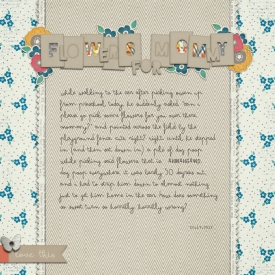 FLOWERS
FOR
MOMMY
while walking to the car after picking owen up
from preschool today he suddenly asked "can i
please go pick some flowers for you over there
mommy?" and pointed across the field by the
playground fence. um, right? right. until he stepped
in (and then sat down in) a pile of dog poop
while picking said flowers. that is
dog poop. everywhere. it was barely 30 degrees out
and i had to strip him down to almost nothing
just to get him home in the car. how does something
so sweet turn so horribly, horribly wrong?
love this